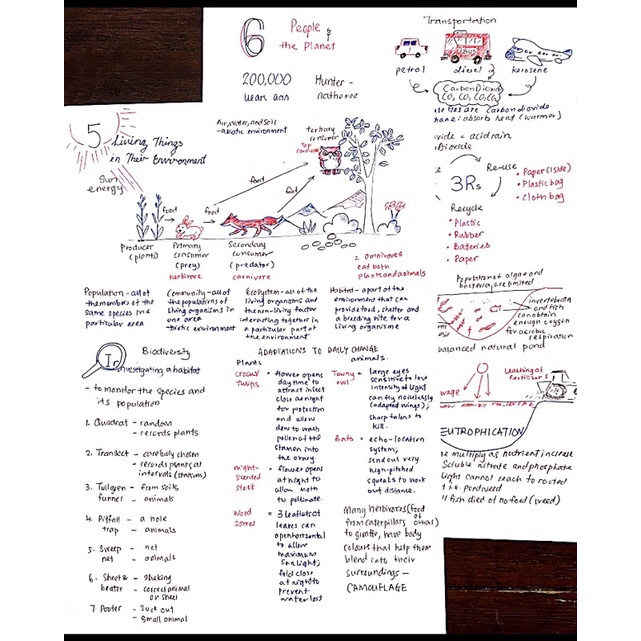 6 People &
the Planet
200,000 Hunter -
years ago
Transportation
BUS
petrol diesel kerosene
Carbon Dioxide
absorbs heat (warmer)
= acid rain
3Rs
Re-use
• Paper (1side)
• Plastic bag
• Cloth bag
Recycle
• Plastic
• Rubber
• Bateries
• Paper
5 Living Things
in Their Environment
Sun
energy
Air, water, and soil
- abiotic environment
tertiary
consumer
food
food
food
Producer
(plant)
Primary
consumer
(prey)
herbivore
Secondary
consumer
(predator)
carnivore
omnivores
eat both
plants and animals
Population - all of
the members of the
same species in a
particular area
Community - all of
the populations of
living organisms in
one area
biotic environment
Ecosystem - all of the
living organisms and
the non-living factor
interacting together in
a particular part of
the environment
Habitat - a part of the
environment that can
provide food, shelter and
a breeding site for a
living organisme
Population of algae and
bacteria are limited
invertebrates
and fish
can obtain
enough oxygen
for aerobic
respiration
balanced natural pond
Leaching of
fertilisers
EUTROPHICATION
multiply as nutrient increase
Soluble nitrate and phosphate
light cannot reach to rooted
fish died no food (weed)
Biodiversity
Investigating a habitat
- to monitor the species and
its population
1. Quadrat - random
- records plants
2. Transect - carefully chosen
- records plants at
intervals (stations)
3. Tullgren - from soils
funnel - animals
4. Pitfall - a hole
trap - animals
5. Sweep - net
net - animals
6. Sheet & - shaking
beater
7. Pooter - Suck out
- small animal
ADAPTATIONS TO DAILY CHANGE
Plants
crocus/
Tulips
= flower opens
day time to
attract insect
close at night
for protection
and allow
dew to wash
pollen of the
stamen into
the ovary.
night-
scented
stock
= flower opens
at night to
allow moth
to pollinate.
Wood
sorrel
= 3 leaflets of
leaves can
open horizontal
to allow
maximum
sunlight;
fold close
at night to
prevent
water loss
animals.
Tawny
owl
- large eyes
sensitive to low
intensity of light
can fly noiselessly
(adapted wings);
sharp talons to
kill.
Bats
- echo-location
system;
send out very
high-pitched
squeaks to work
out distance.
Many herbivores (food of others)
from caterpillars
to giraffe, have body
colours that help them
blend into their
surroundings -
CAMOUFLAGE